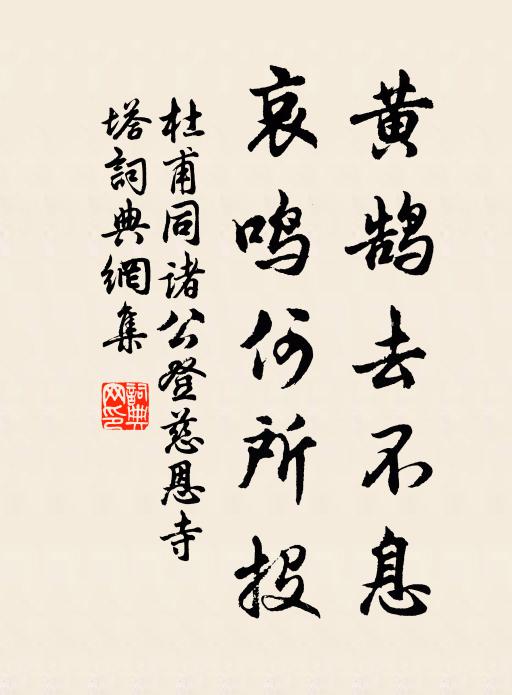 黄鹄去不息
哀鸣何所投
杜甫同诸公登慈恩寺
塔詞典網集
詞典
网印